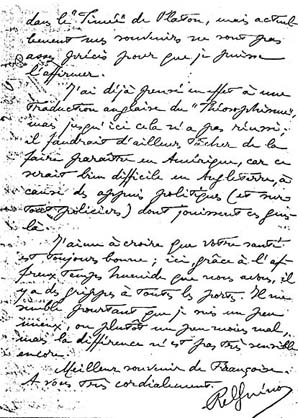 dans le "Timée" de Platon, mais actuel-
lement mes souvenirs ne sont pas
assez précis pour que je puisse
l'affirmer.
J'ai déjà pensé en effet à une
traduction anglaise du "Théosophisme",
mais jusqu'ici cela n'a pas réussi;
il faudrait d'ailleurs tâcher de la
faire paraître en Amérique, car ce
serait bien difficile en Angleterre, à
cause des appuis politiques (et sur-
tout policiers) dont jouissent ces gens-
là.
J'aime à croire que votre santé
est toujours bonne; ici, grâce à l'af-
freux temps humide que nous avons, il
y a des grippes à toutes les portes. Il me
semble pourtant que je suis un peu
mieux, ou plutôt un peu moins mal,
mais la différence n'est pas très sensible
encore.
Meilleur souvenir de Françoise.
A vous très cordialement.
René Guénon